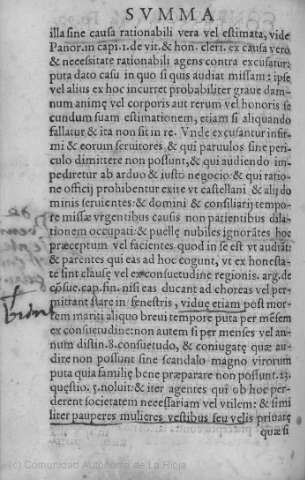 SVMMA
illa sine causa rationabili vera vel estimata, vide
Panor. in capi. 1. de vit. & hon. cleri. ex causa vero
& necessitate rationabili agens contra excusatur:
puta dato casu in quo si quis audiat missam: ipse
vel alius ex hoc incurret probabiliter graue dam-
num animę vel corporis aut rerum vel honoris se
cundum suam estimationem, etiam si aliquando
fallatur & ita non sit in re. Vnde excusantur infir
mi & eorum seruitores & qui paruulos sine peri-
culo dimittere non possunt, & qui audiendo im-
pediretur ab arduo & iusto negocio: & qui ratio
ne officij prohibentur exire vt castellani & alij do
minis seruientes: & domini & consiliarij tempo-
re missæ vrgentibus causis non patientibus dila-
tionem occupati: & puellę nubiles ignorātes hoc
præceptum vel facientes quod in se est vt audiāt:
& parentes qui eas ad hoc cogunt, vt ex honesta-
te sint clausę vel ex consuetudine regionis. arg. de
cap. fin. nisi eas ducant ad choreas vel per-
mittant stare in fenestris, viduę etiam post mor-
tem mariti aliquo breui tempore puta per mēsem
ex consuetudine: non autem si per menses vel an-
num distin. 8. consuetudo, & coniugatę quæ au-
dire non possunt sine scandalo magno virorum
puta quia familię bene præparare non possunt. 23.
quęstio. 5. noluit: & iter agentes qui ob hoc per-
derent societatem necessariam vel vtilem: & simi
liter pauperes mulieres vestibus seu velis priuatę
quæ si
(c) Comunidad Autónoma de La Rioja